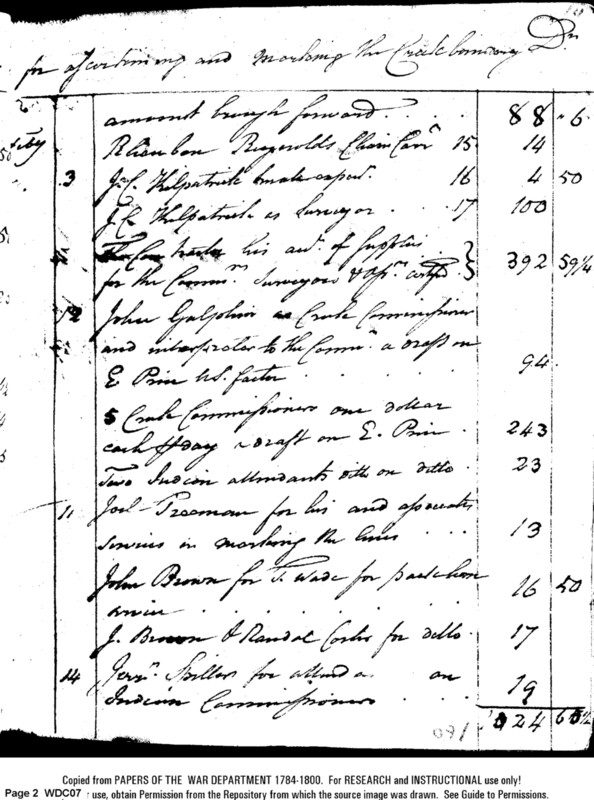 for ascertaining and marking the Creek boundary Dr
amount brough forward . . . 88 " 6
July Rheuben Reynolds Chain Carr 15 14
3 J. C. Kilpatrick 16 4 50
J. C. Kilpatrick as Surveyor . . 17 100
his act. of Supplies
for the Commrs. Surveyors & 392 59¼
12 John Galphin as Creek Commissioner
and interpreter to the Commrs. a draft on
E Price U.S. factor . . . . . 94
5 Creek Commissioners one dollar
cash day draft on E. Price . 243
Two Indian attendants ditto on ditto . 23
11 Joel Freeman for his and associates
services in marking the lines . . . . 13
John Brown for T. Wade for packhorse
service . . . . . . . 16 50
J. Brown & Randal for ditto 17
14 Spiller for on
Indian Commissioners . . . 19
1024 60½
Copied from PAPERS OF THE WAR DEPARTMENT 1784-1800. For RESEARCH and INSTRUCTIONAL use only!
Page 2 WDC07 r use, obtain Permission from the Repository from which the source image was drawn. See Guide to Permissions.